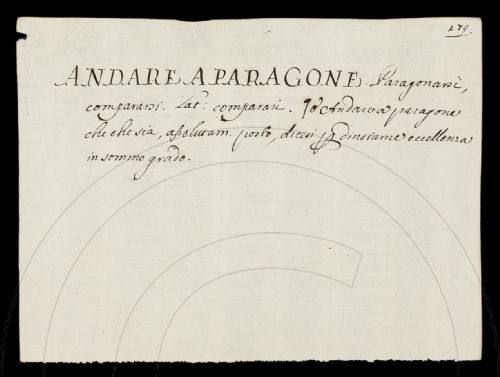 279.
ANDARE A PARAGONE. Paragonarsi,
comparansi. Lat: comparari. Andare a paragone
che che sia, assolutam. posto, dicesi dinotare eccellenza
in sommo grado.